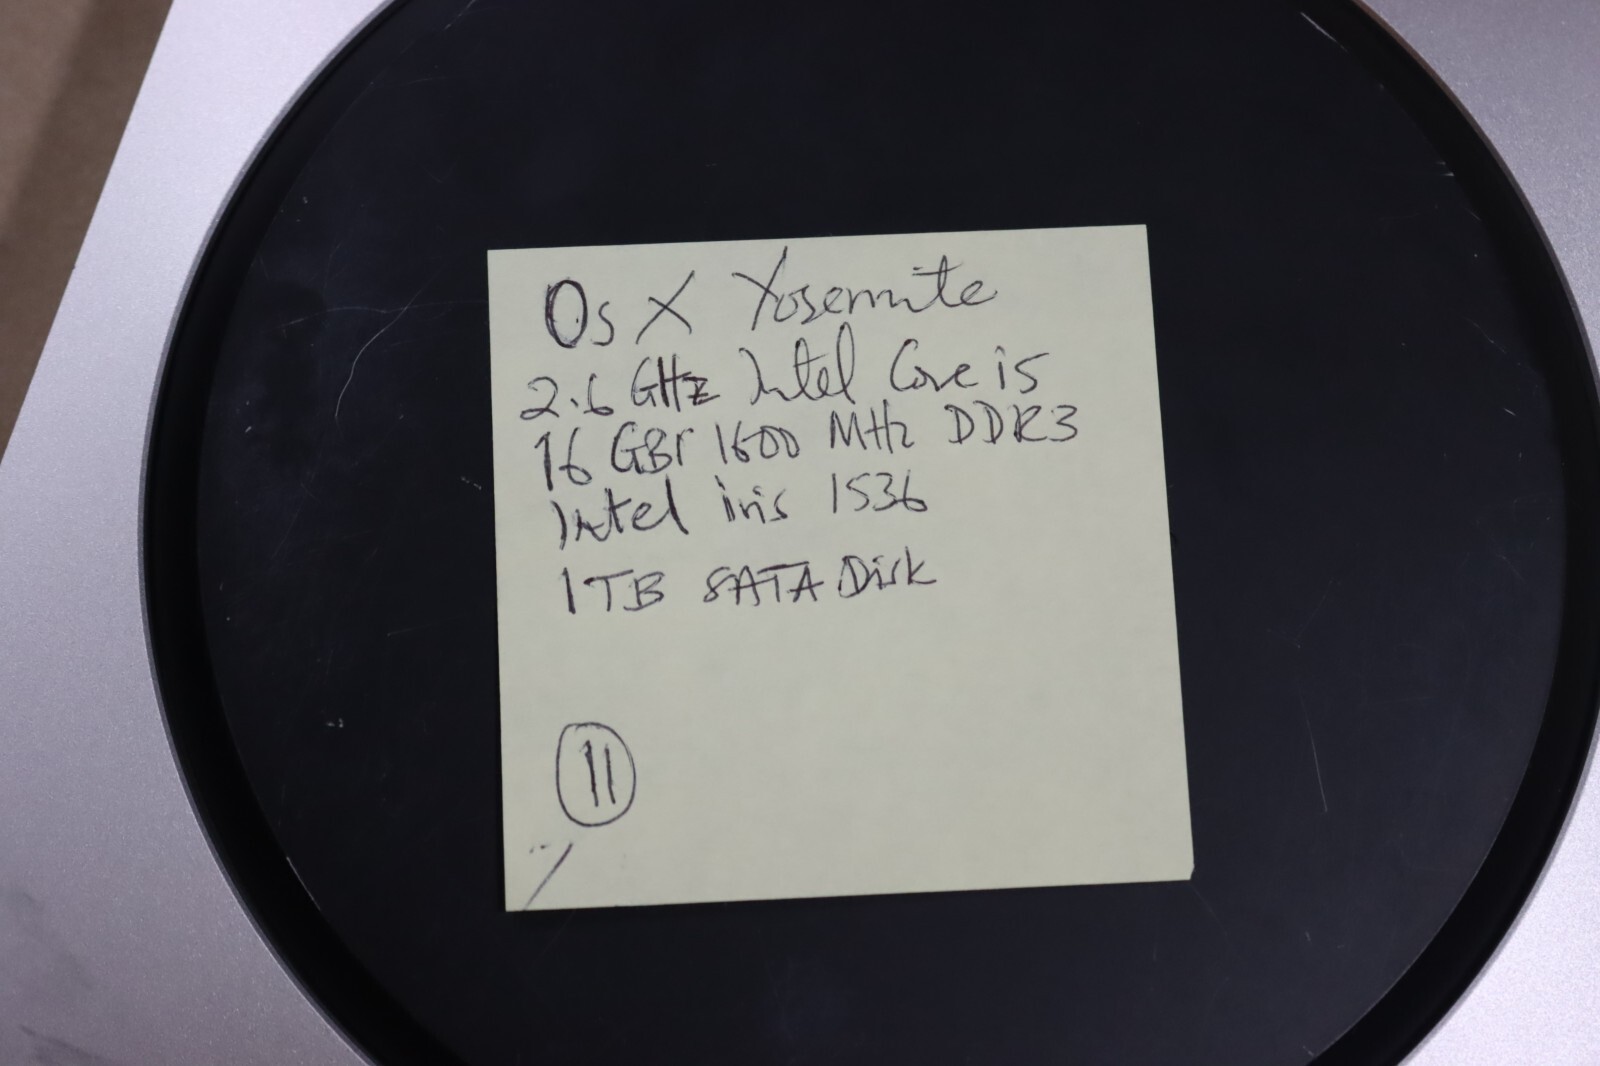 Os X Yosemite
2.6 GHz Intel Core i5
16 GBr 1600 MHz DDR3
Intel iris 1536
1 TB SATA Disk
11